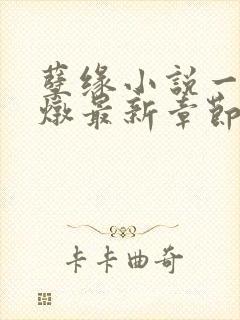 孽缘小説一
燉最新章節
卡卡曲奇